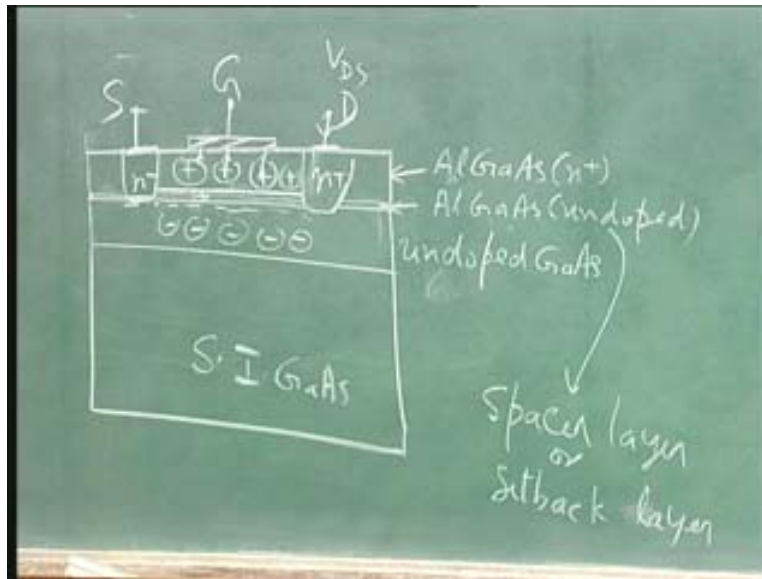 V_DS
S G D
n+ + + + + n+
AlGaAs (n+)
AlGaAs (undoped)
undoped GaAs
- - - - -
S. I. GaAs
Spacer layer
or
Setback layer